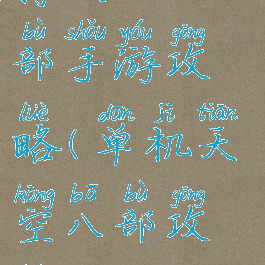 bù shǒu yóu gōng
部手游攻
lüè dān jī tiān
略(单机天
kōng bā bù gōng
空八部攻